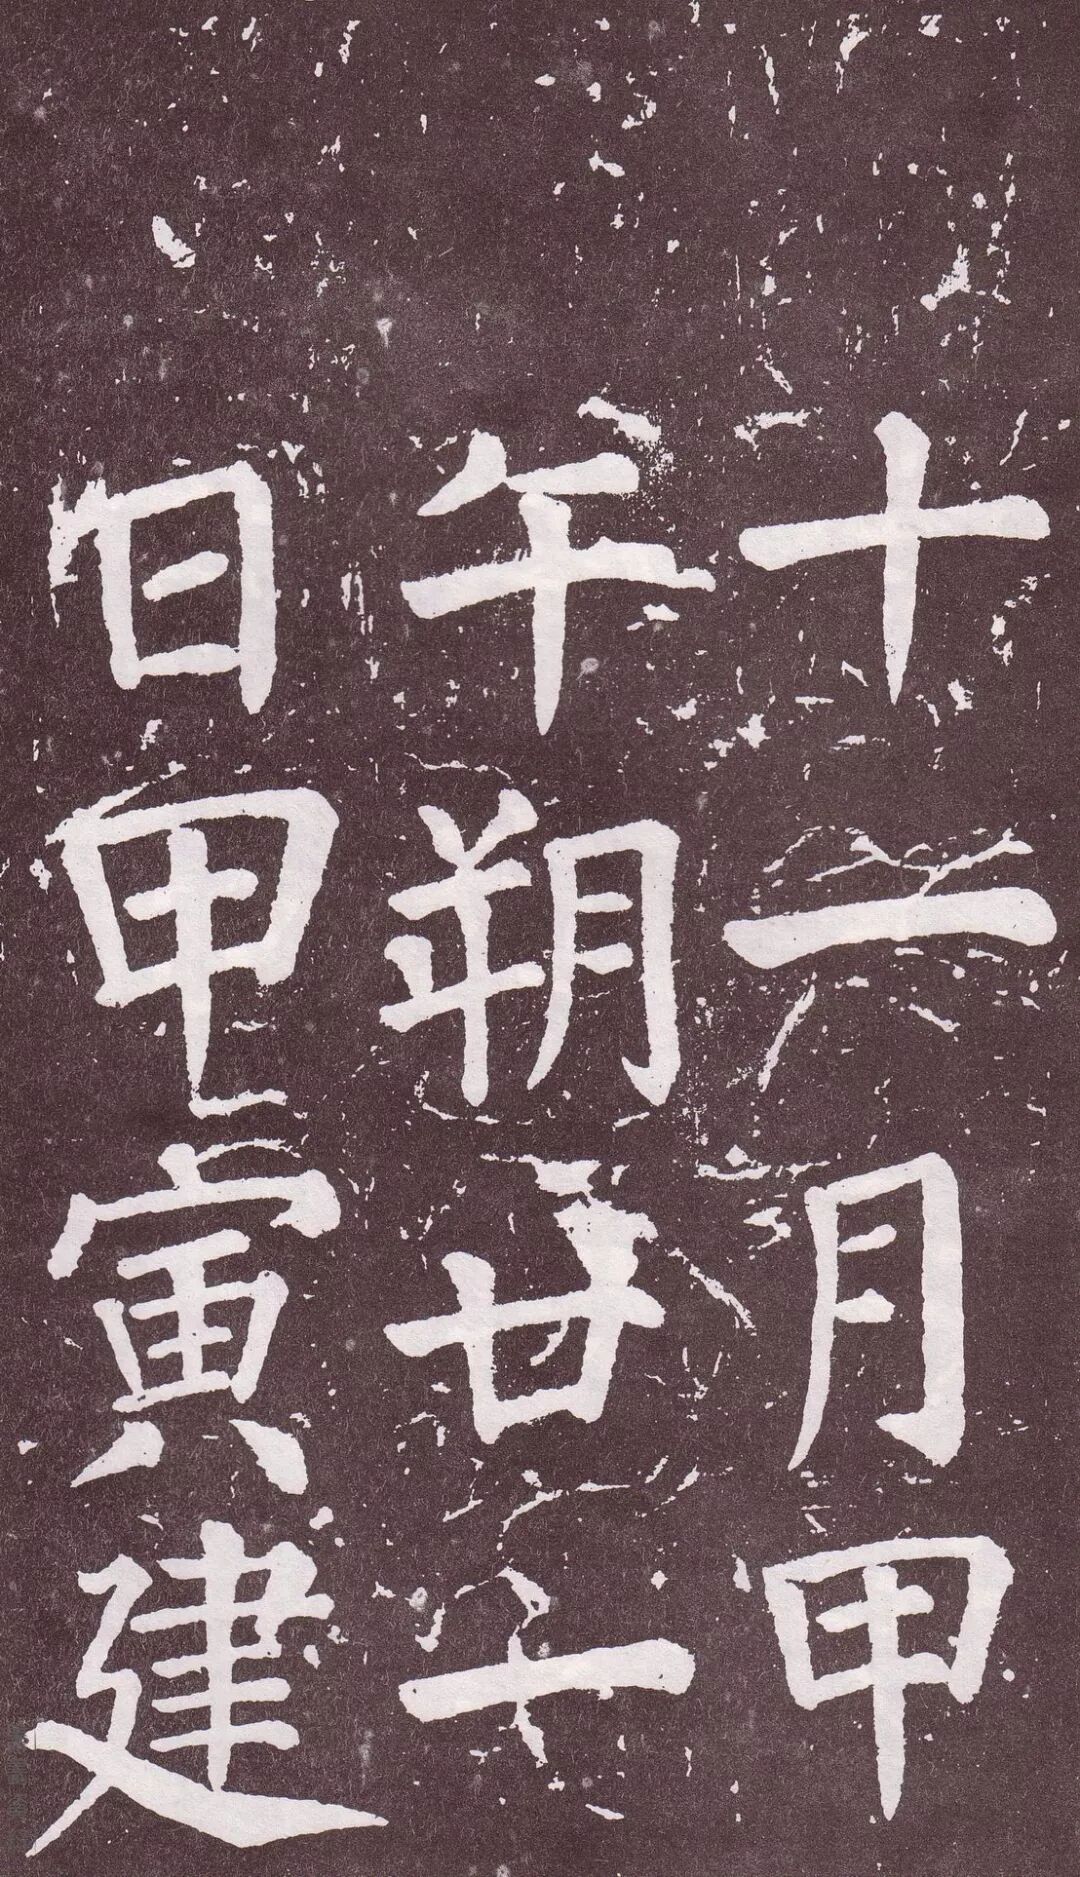 十一月甲
午朔廿一
日甲寅建